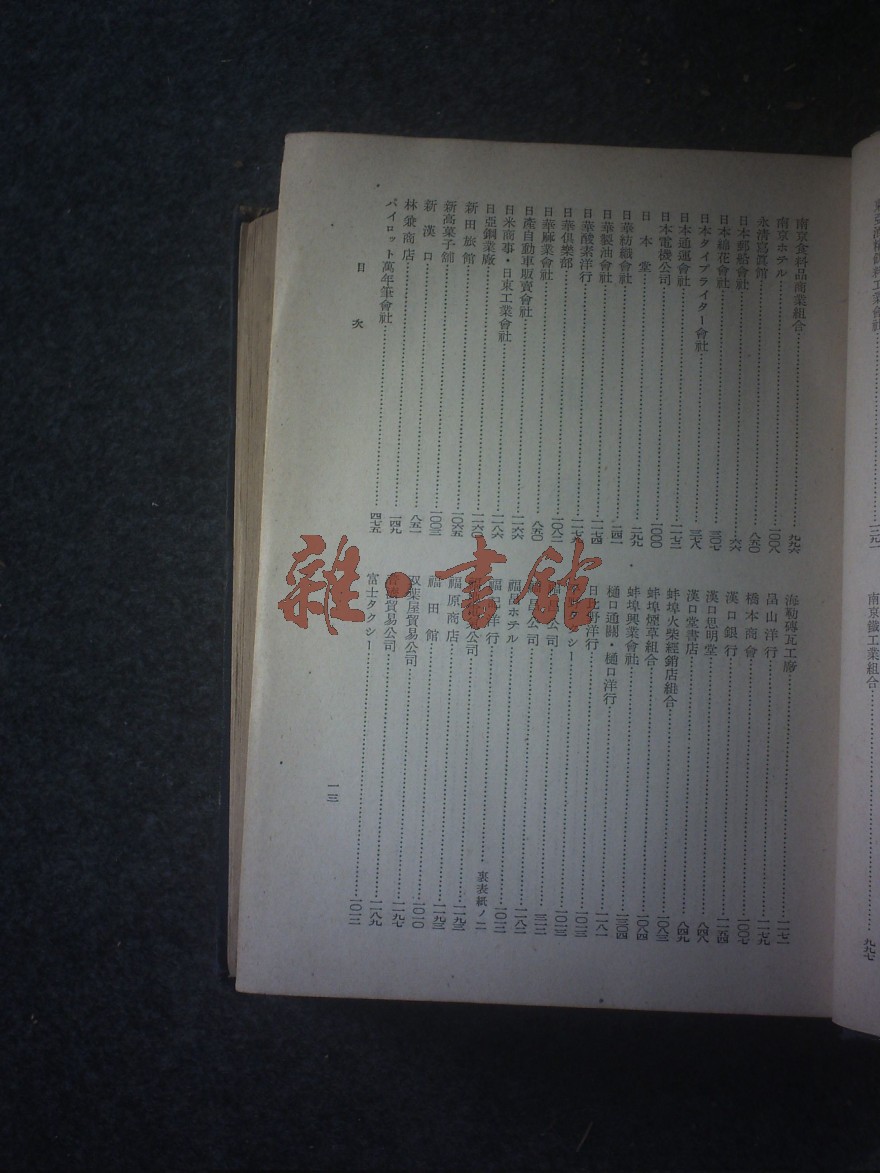 南京鐵工業組合……九九七
南京食料品商業組合……九九六
南京ホテル……一〇〇八
永清寫眞館……八五〇
日本郵船會社……六六
日本綿花會社……三〇七
日本タイプライター會社……三七八
日本通運會社……一一七二
日本電機公司……一〇〇〇
日本堂……二九九
日華紡織會社……一四一
日華製油會社……一一七四
日華酸素洋行……一一七九
日華俱樂部……一〇八二
日華麻業會社……八五〇
日產自動車販賣會社……一一六六
日米商事・日東工業會社……一一八六
日亞鋼業廠……一一六〇
新田旅館……一〇六五
新高菓子舖……一〇〇三
新漢口……八五一
林兼商店……一四九
パイロット萬年筆會社……四七五
海勒磚瓦工廠……一一七一
畠山洋行……一一七九
橋本商會……一〇〇七
漢口銀行……一一五四
漢口思明堂……八四八
漢口堂書店……八四九
蚌埠火柴經銷店組合……一〇八三
蚌埠煙草組合……一〇八四
蚌埠興業會社……一三〇四
樋口通關・樋口洋行……一一八一
日比野洋行……一〇一三
タクシー……一〇一三
昌公司……三一二
福昌ホテル……一一八二
洋行……一〇一二
公司……裏表紙ノ二
福原商店……一一九三
福田館……一一九三
双葉屋貿易公司……一〇一〇
貿易公司……一一九七
富士タクシー……一一八九
一〇一二
目次
一三
雜・書館